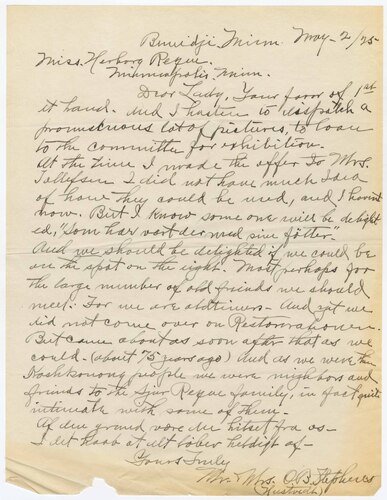 Bemidji Minn. May-2/25
Miss. Herborg Reque.
Minneapolis. Minn.
Dear Lady, Your favor of 1st
at hand. And I hasten to disspatch a
promuscuous lot of pictures, to loan
to the committee for exhibition.
At the time I made the offer to Mrs.
Tollefsen I did not have much Idea
of how they could be used, and I havent
now. But I know some one will be delight
ed, "Som har vært der med sine føtter".
And we should be delighted if we could be
on the spot on the eight. Most perhaps for
the large number of old friends we should
meet. For we are oldtimers. And yet we
did not come over on Restorationen
But came about as soon after that as we
could (about 75 years ago) And as we were the
Koshkonong people we were neighbors and
friends to the Reque family, in fact quite
intimate with some of them.
Af den grund være De hilset fra os-
I det haab at alt løber heldigt af-
Yours Truly
Mr & Mrs. O.B. Stephens